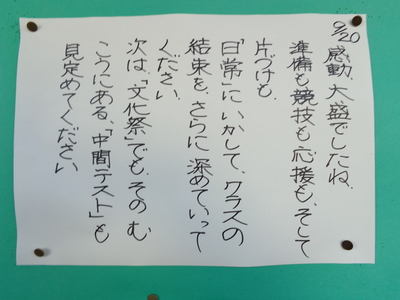 9/20 感動、大盛でしたね、
準備も競技も応援も、そして
片づけも。
「日常」にいかして、クラスの
結束を、さらに深めていって
ください。
次は、「文化祭」でも、そのむ
こうにある、「中間テスト」も
見定めてください